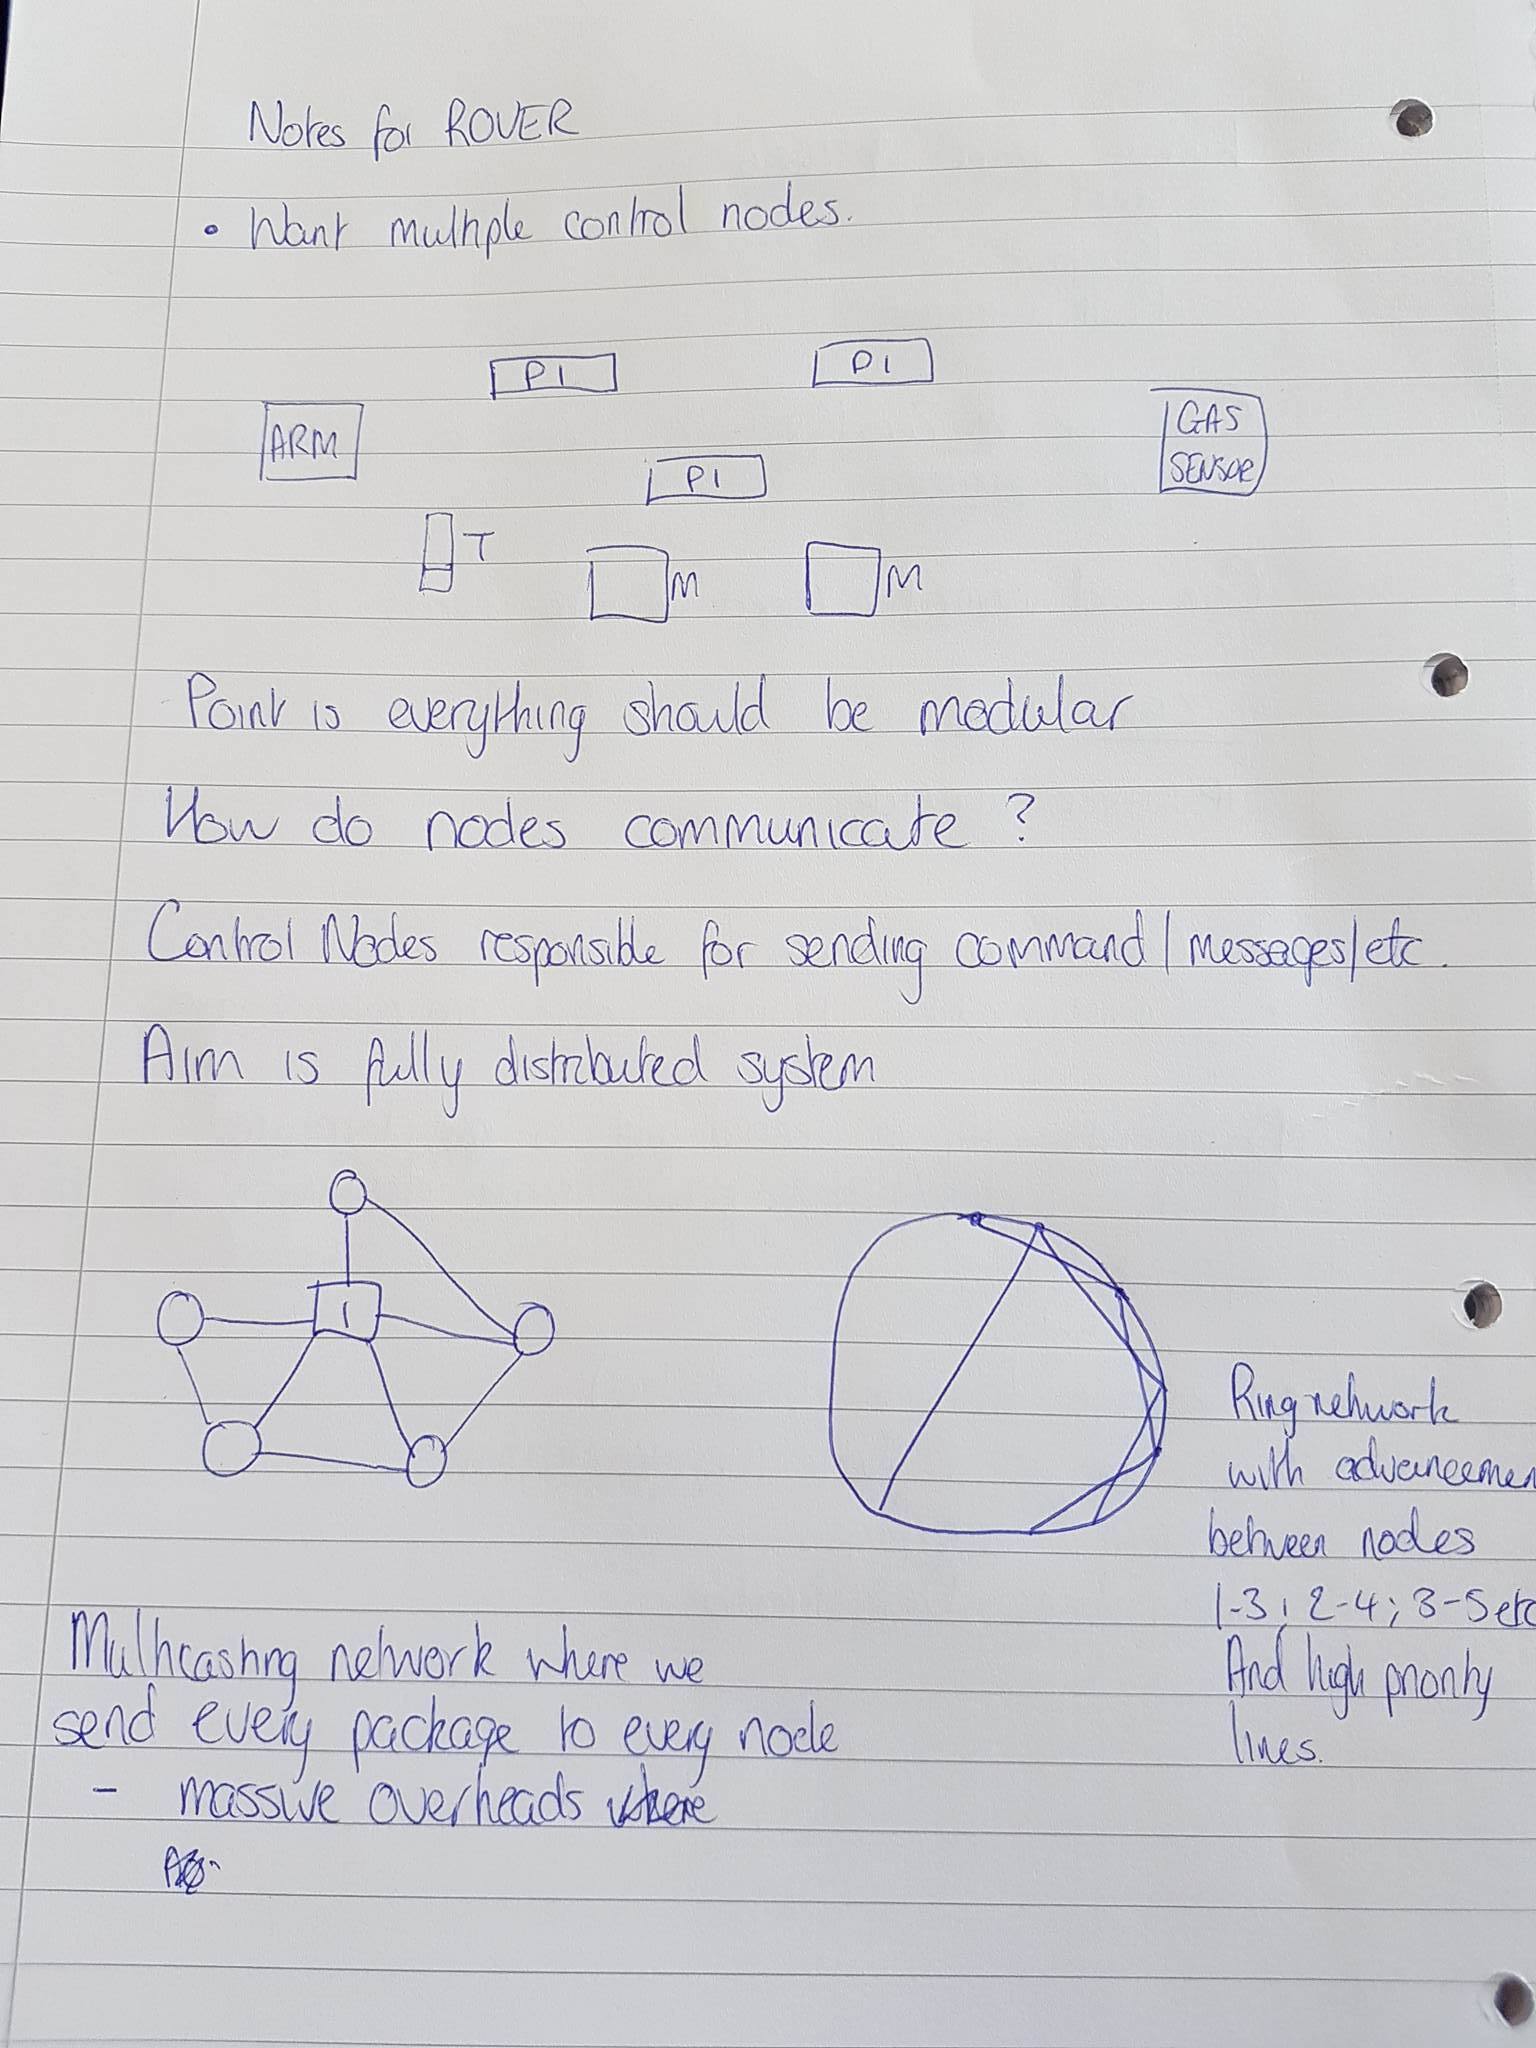 Notes for ROVER
• Want multiple control nodes.
PI
PI
ARM
GAS
SENSOR
PI
T
M
M
Point is everything should be modular
How do nodes communicate ?
Control Nodes responsible for sending command/messages/etc.
Aim is fully distributed system
1
Ring network
with advancemen
between nodes
1-3; 2-4; 3-5 etc
And high priority
lines.
Multicasting network where we
send every package to every node
- massive overheads where